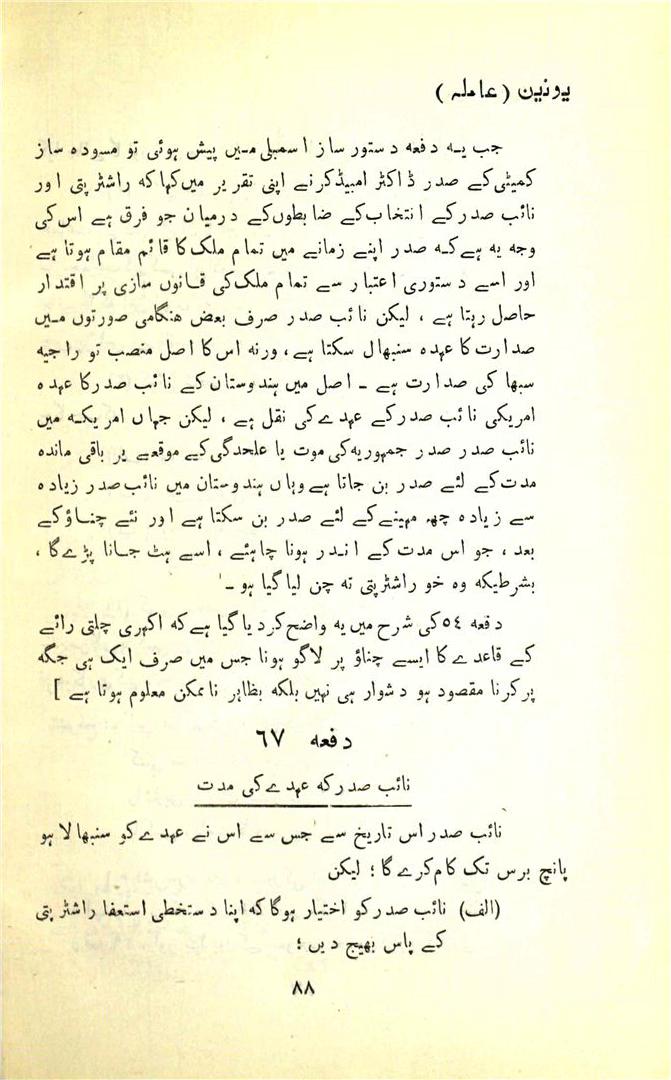 یونین (عاملہ)
جب یہ دفعہ دستور ساز اسمبلی میں پیش ہوئی تو مسودہ ساز
کمیٹی کے صدر ڈاکٹر امبیڈکر نے اپنی تقریر میں کہا کہ راشٹرپتی اور
نائب صدر کے انتخاب کے ضابطوں کے درمیان جو فرق ہے اس کی
وجہ یہ ہے کہ صدر اپنے زمانے میں تمام ملک کا قائم مقام ہوتا ہے
اور اسے دستوری اعتبار سے تمام ملک کی قانوں سازی پر اقتدار
حاصل رہتا ہے ، لیکن نائب صدر صرف بعض ہنگامی صورتوں میں
صدارت کا عہدہ سنبھال سکتا ہے، ورنہ اس کا اصل منصب تو راجیہ
سبھا کی صدارت ہے ۔ اصل میں ہندوستان کے نائب صدر کا عہدہ
امریکی نائب صدر کے عہدے کی نقل ہے ، لیکن جہاں امریکہ میں
نائب صدر صدر جمہوریہ کی موت یا علحدگی کے موقعے پر باقی ماندہ
مدت کے لئے صدر بن جاتا ہے وہاں ہندوستان میں نائب صدر زیادہ
سے زیادہ چھہ مہینے کے لئے صدر بن سکتا ہے اور نئے چناؤ کے
بعد ، جو اس مدت کے اندر ہونا چاہئے ، اسے ہٹ جانا پڑے گا ،
بشرطیکہ وہ خو راشٹرپتی نہ چن لیا گیا ہو ۔'
دفعہ ٥٤ کی شرح میں یہ واضح کردیا گیا ہے کہ اکہری چلتی رائے
کے قاعدے کا ایسے چناؤ پر لاگو ہونا جس میں صرف ایک ہی جگہ
پر کرنا مقصود ہو دشوار ہی نہیں بلکہ بظاہر ناممکن معلوم ہوتا ہے ]
دفعہ ٦٧
نائب صدر کہ عہدے کی مدت
نائب صدر اس تاریخ سے جس سے اس نے عہدے کو سنبھالا ہو
پانچ برس تک کام کرے گا ؛ لیکن
(الف) نائب صدر کو اختیار ہوگا کہ اپنا دستخطی استعفا راشٹرپتی
کے پاس بھیج دیں ؛
٨٨